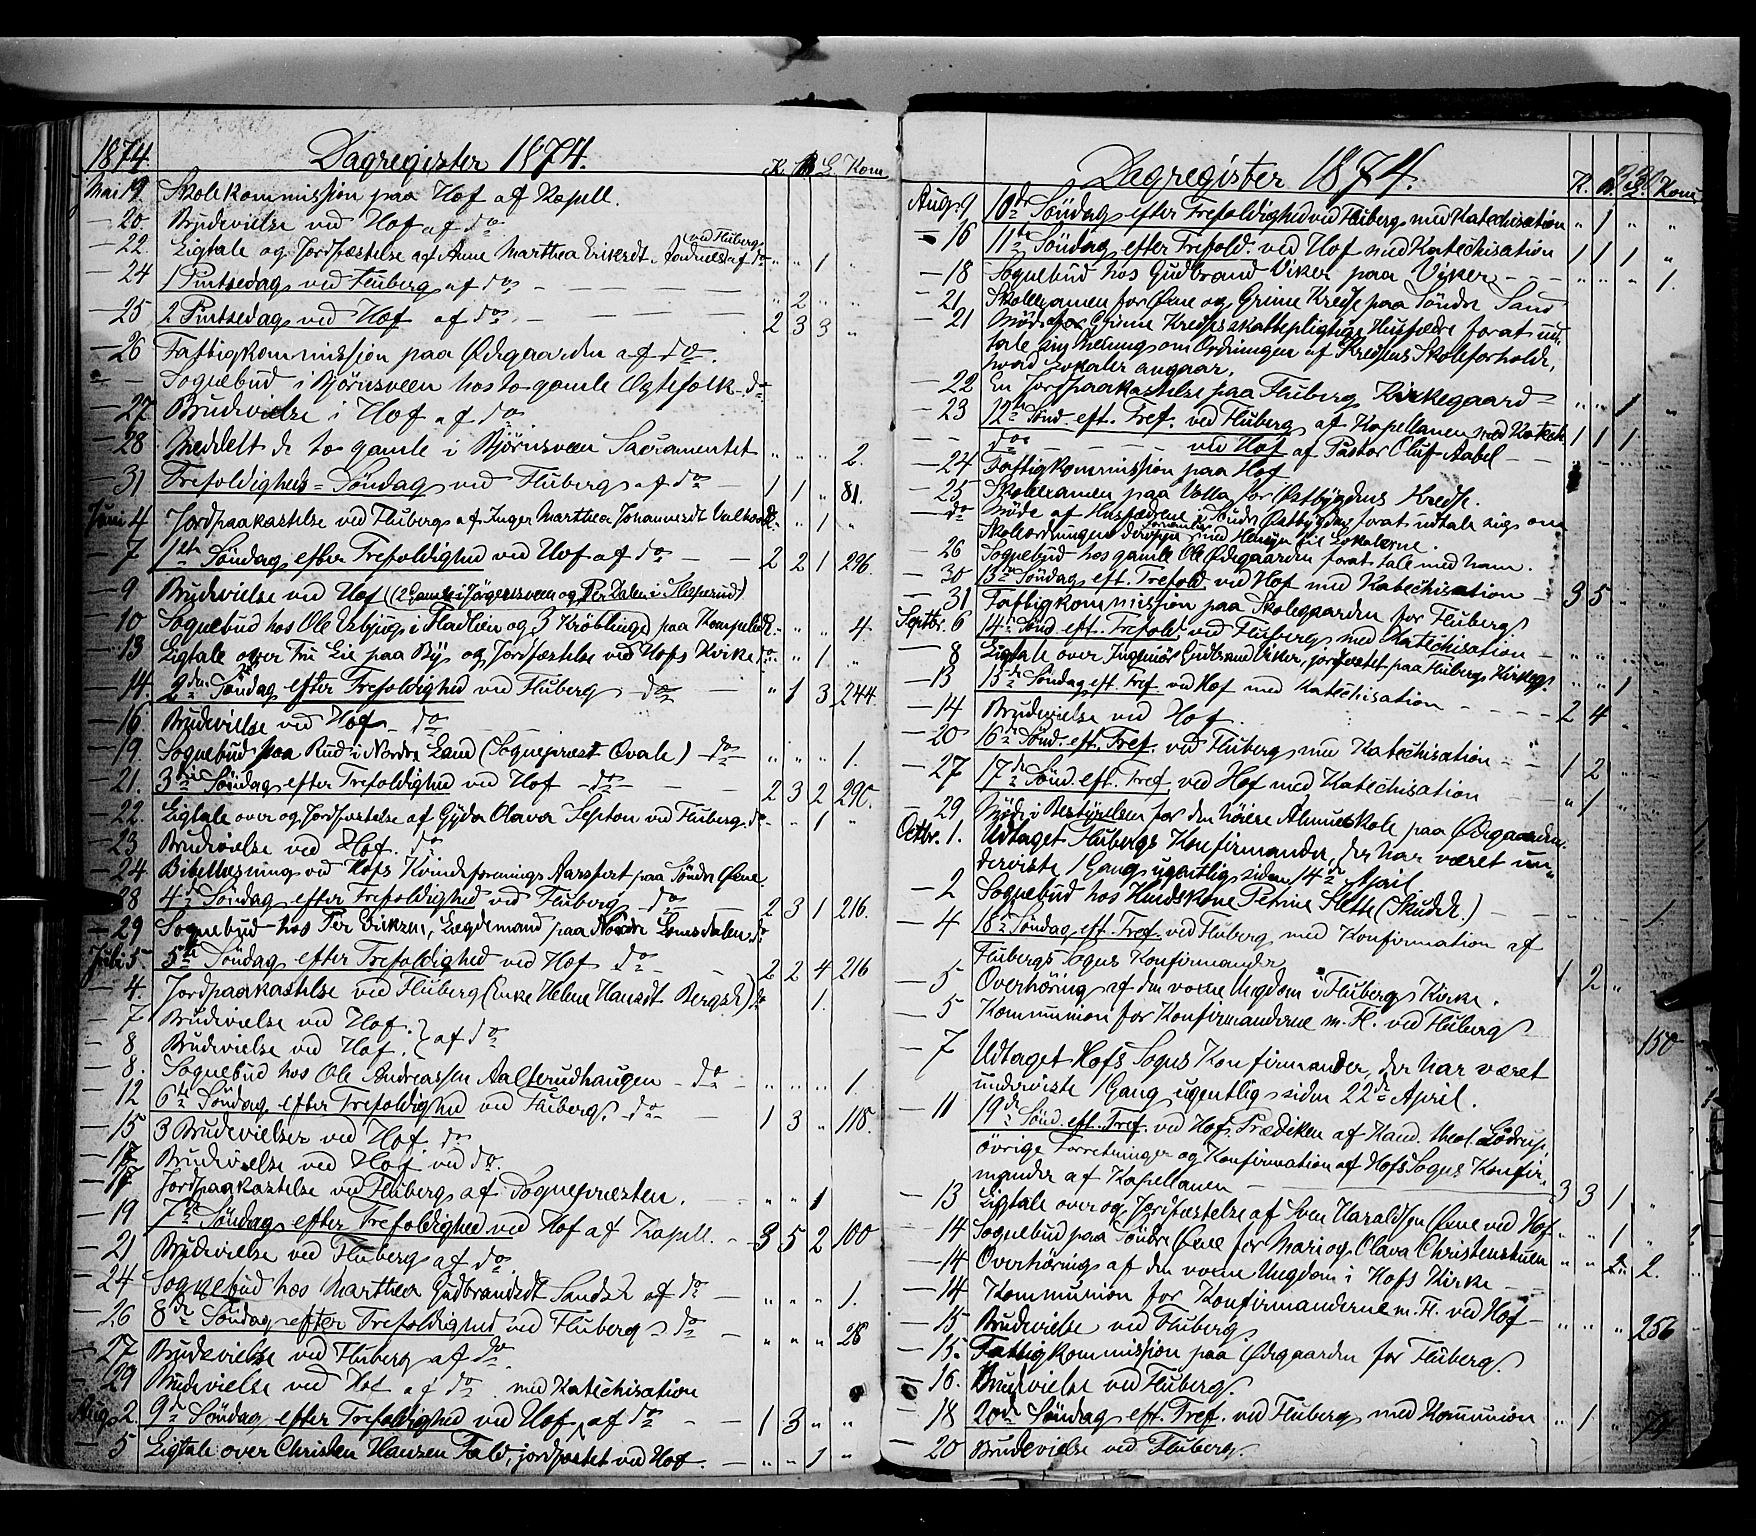 1874. Dagregister 1874. K. B. L. Kom
Mai 19. Skolekommission paa Hof af Kapell.
— 20. Brudevielse ved Hof af do
— 22. Ligtale og Jordfæstelse af Anne Marthea Eriksdt. ved Fluberg af do „ „ 1 „
— 24 1 Pintsedag ved Fluberg af do — — — „ 2 „ „
— 25 2 Pintsedag ved Hof af do. — — — 2 3 3 „
— 26 Fattigkommission paa Ødegaarden af do.
— — Sognebud i Bjørnsveen hos to gamle Ægtefolk do
— 27 Brudevielse i Hof af do
— 28 Meddelt de to gamle i Bjørnsveen Sacramentet „ „ „ 2.
— 31 Trefoldigheds-Søndag ved Fluberg af do — 1 1 „ 81.
Juni 4 Jordpaakastelse ved Fluberg af Inger Marthea Johannesdt „ 1 „
— 7 1ste Søndag efter Trefoldighed ved Hof af do — — 2 2 1 296.
— 9 Brudevielse ved Hof (2 Gamle i Jørgensveen og Per Dalen i )
— 10 Sognebud hos Ole i Fladlien og 3 Kröblinge paa „ „ 4.
— 13 Ligtale over Fru Lie paa By og Jordfæstelse ved Hofs Kirke do „ 1 „
— 14. 2den Søndag efter Trefoldighed ved Fluberg do — „ 1 3 244.
— 16 Brudevielse ved Hof — do —
— 19. Sognebud paa Rud i Nordre Land (Sognepræst Ovale) — do — „ „ „ 1.
— 21. 3die Søndag efter Trefoldighed ved Hof — do — — 2 3 2 290.
— 22. Ligtale over og Jordfæstelse af Gyda Olava Septon ved Fluberg. do „ 1 „
— 23 Brudevielse ved Hof. do
— 24 Bibellæsning ved Hofs Kvindeforenings Aarsfest paa Søndre Øxne.
— 28 4de Søndag efter Trefoldighed ved Fluberg — do — 2 3 1 216.
— 29 Sognebud hos Per Eriksen, Lægdemand paa Nordre Lomsdalen. do
Juli 5. 5te Søndag efter Trefoldighed ved Hof do — — 2 2 4 216
— 4. Jordpaakastelse ved Fluberg (Enke Helene Hansdt Bergs ) do 1.
— 7 Brudevielse ved Hof. } af do
— 8 Brudevielse ved Hof. }
— 8. Sognebud hos Ole Andreassen Aalterudhaugen — do — „ „ „ 1.
— 12 6te Søndag efter Trefoldighed ved Fluberg. do — 1 3 „ 118.
— 15 3 Brudevielser ved Hof. do
— 17 Brudevielse ved Hof ved do.
— 17 Jordpaakastelse ved Fluberg af Sognepræsten. — „ „ 1
— 19 7de Søndag efter Trefoldighed ved Hof af Kapell. — 3 5 2 100
— 21 Brudevielse ved Fluberg af do.
— 24 Sognebud hos Marthea Gudbrandsdt Sands af do — „ „ „ 1.
— 26 8de Søndag efter Trefoldighed ved Fluberg do — „ „ „ 28
— 27 Brudevielse ved Fluberg af do.
— 29 Brudevielse ved Hof af do. med Katechisation
Aug. 2. 9de Søndag efter Trefoldighed ved Hof, af do — — 1 3 „ „
— 5 Ligtale over Christen Hansen Fald, jordfæstet ved Hof. — „ „ 1 „
Dagregister 1874. K. B. L. Kom
Aug. 9 10de Søndag efter Trefoldighed ved Fluberg med Katechisation „ 1 „ „
— 16 11te Søndag efter Trefold. ved Hof med Katechisation 1 1 1 „
— 18 Sognebud hos Gudbrand Viker paa Viker — — „ „ „ 1.
— 21 Skoleexamen for Øxne og Grime Kreds paa Søndre Sand
— 21 Møde for Grime Kredses skattepligtige Husfædre forat ud-
tale sig om Ordningen af Kredsens Skoleforholde,
hvad Lokaler angaar.
— 22 En Jordpaakastelse paa Fluberg Kirkegaard — „ „ 1 „
— 23 12te Sønd. eft. Tref. ved Fluberg af Kapellanen med Katech. 1 1 1.
— — do — — ved Hof af Pastor Oluf Aabel — —
— 24 Fattigkommission paa Hof
— 25 Skoleexamen paa Volla for Østbygdens Kreds.
— do Møde af Husfædrene i Søndre Østbygden forat udtale sig om
Skoleordningen med Hensyn til Lokalerne.
— 26 Sognebud hos gamle Ole Ødegaarden forat tale med ham.
— 30 13de Søndag eft. Trefold ved Hof med Katechisation — 3 5 „
— 31 Fattigkommission paa Skolegaarden for Fluberg
Septbr. 6 14de Sønd. eft. Trefold. ved Fluberg med Katechisation — „ „ „
— 8 Ligtale over Ingeniør Gudbrand Viker, jordfæstet paa Fluberg Kirkeg. „ „ 1
— 13 15de Søndag eft. Tref. ved Hof med Katechisation — — — 2 4 „
— 14 Brudevielse ved Hof.
— 20 16de Sønd. eft. Tref. ved Fluberg med Katechisation — — 1 2 „
— 27 17de Sønd. eft. Tref. ved Hof med Katechisation — — „ 1 „
— 29 Møde i Bestyrelsen for den høiere Almueskole paa Ødegaarden.
Octbr. 1. Udtaget Flubergs Konfirmander, der har været un-
dervist 1 Gang ugentlig siden 14de April
— 2 Sognebud hos Huuskone Petrine Slette (Skudt.) — — „ „ „ 1
— 4 18de Søndag eft. Tref. ved Fluberg med Konfirmation af
Flubergs Sogns Konfirmander 1 2 „
— 5 Overhøring af den voxne Ungdom i Fluberg Kirke.
— 5 Kommunion for Konfirmanderne m. Fl. ved Fluberg 150
— 7 Udtaget Hofs Sogns Konfirmander, der har været
underviste 1 Gang ugentlig siden 22de April.
— 11 19de Sønd. eft. Tref. ved Hof. Prædiken af Kand. theol. Lødrup,
øvrige Forretninger og Konfirmation af Hofs Sogns Konfir-
mander af Kapellanen — 3 3 1 „
— 13 Ligtale over og Jordfæstelse af Sven Haraldsen Øxne ved Hof „ „ 1 „
— 14 Sognebud paa Søndre Øxne for Mari og Olava Christenstuen „ „ „ 2.
— 14 Overhøring af den voxne Ungdom i Hofs Kirke —
— 14 Kommunion for Konfirmanderne m. Fl. ved Hof — „ „ „ 256
— 15 Brudevielse ved Fluberg.
— 15. Fattigkommission paa Ødegaarden for Fluberg.
— 16. Brudevielse ved Fluberg.
— 18 20de Søndag eft. Tref. ved Fluberg med Kommunion „ 1 „
— 20 Brudevielse ved Fluberg.